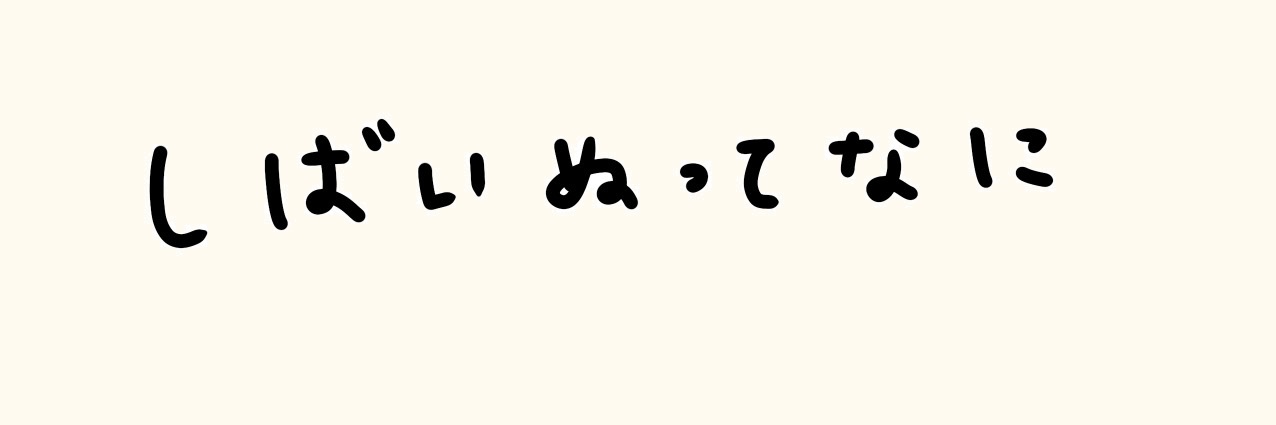 しばいぬってなに